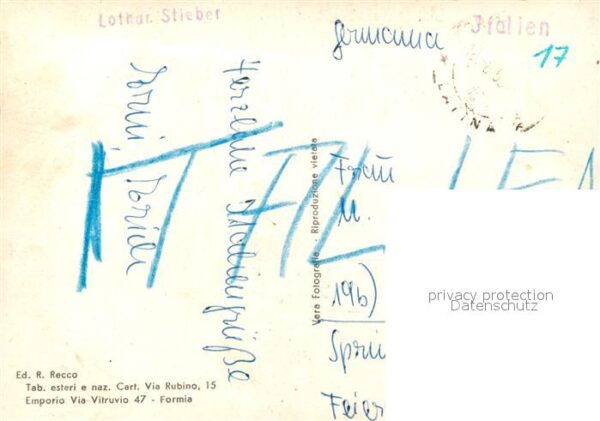 Lothar. Stieber
Italien
17
Germania
LATINA
Herzliche Italiengrüße
ITALIEN
Vera Fotografia - Riproduzione vietata
19b)
privacy protection
Datenschutz
Feier
Ed. R. Recco
Tab. esteri e naz. Cart. Via Rubino, 15
Emporio Via Vitruvio 47 - Formia